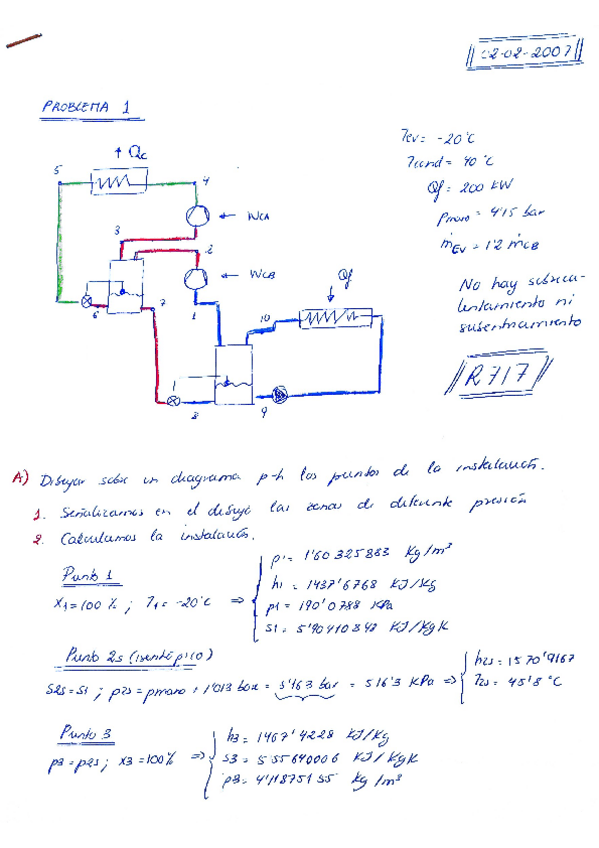 02-02-2007
PROBLEMA 1
↑ Qc
5
4
WCA
3
2
WCB
Qf
6
7
1
10
8
9
Tev = -20°C
Tcond = 40°C
Qf = 200 kW
pmano = 4'15 bar
ṁEV = 1'2 ṁCB
No hay sobreca-
lentamiento ni
subenfriamiento
R717
A) Dibujar sobre un diagrama p-h los puntos de la instalación.
1. Señalizamos en el dibujo las zonas de diferente presión
2. Calculamos la instalación.
Punto 1
X1 = 100 % ; T1 = -20°C ⇒
ρ1 = 1'60325883 Kg/m³
h1 = 1437'6768 KJ/Kg
p1 = 190'0788 KPa
S1 = 5'90410842 KJ/KgK
Punto 2s (isentrópico)
S2s = S1 ; p2s = pmano + 1'013 bar = 5'163 bar = 516'3 KPa ⇒
h2s = 1570'9167
T2s = 45'8 °C
Punto 3
p3 = p2s ; X3 = 100% ⇒
h3 = 1467'4228 KJ/Kg
S3 = 5'55640006 KJ/KgK
ρ3 = 4'11875155 Kg/m³